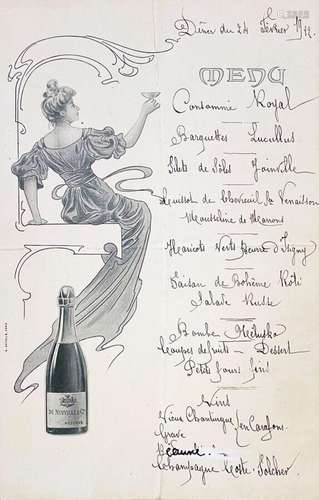 Dîner du 24 Février 1912
MENU
Consommé Royal
Barquettes Lucullus
Filets de Sôles Joinville
Cuissot de Chevreuil Sce Venaison
Mousseline de Marrons
Haricots Verts Beurre d'Isigny
Faisan de Bohême Rôti
Salade Russe
Bombe Nélusko
Causses de fruits - Dessert
Petits fours fins
Vins
Vieux Chantinque
Grave
en Carafons
Beaune
Champagne
DE NEUVILLE & Co